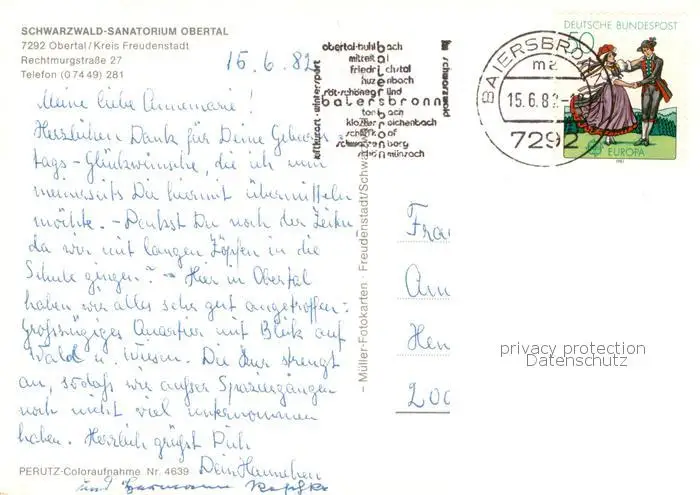 SCHWARZWALD-SANATORIUM OBERTAL
7292 Obertal / Kreis Freudenstadt
Rechtmurgstraße 27
Telefon (07449) 281
15.6.82
Meine liebe Annemarie!
Herzlichen Dank für Deine Geburts-
tags-Glückwünsche, die ich nun
meinerseits Dir hiermit übermitteln
möchte. - Denkst Du noch der Zeiten
da wir mit langen Zöpfen in die
Schule gingen? - Hier in Obertal
haben wir alles sehr gut angetroffen:
Großzügiges Quartier mit Blick auf
Wald u. Wiesen. Die Kur strengt
an, sodaß wir außer Spaziergängen
noch nicht viel unternommen
haben. Herzlich grüßt Dich
Dein Hannchen
und Hermann
PERUTZ-Coloraufnahme Nr. 4639
- Müller-Fotokarten · Freudenstadt/Schw
obertal-buhlbach
mitteltal
friedrichstal
huzenbach
röt-schönegründ
baiersbronn
tonbach
klosterreichenbach
schwarzenberg
schönmünzach
luftkurort · wintersport
im schwarzwald
BAIERSBRONN
ma
15.6.82
7292
DEUTSCHE BUNDESPOST
50
EUROPA
1981
Frau
An
Hen
200
privacy protection
Datenschutz